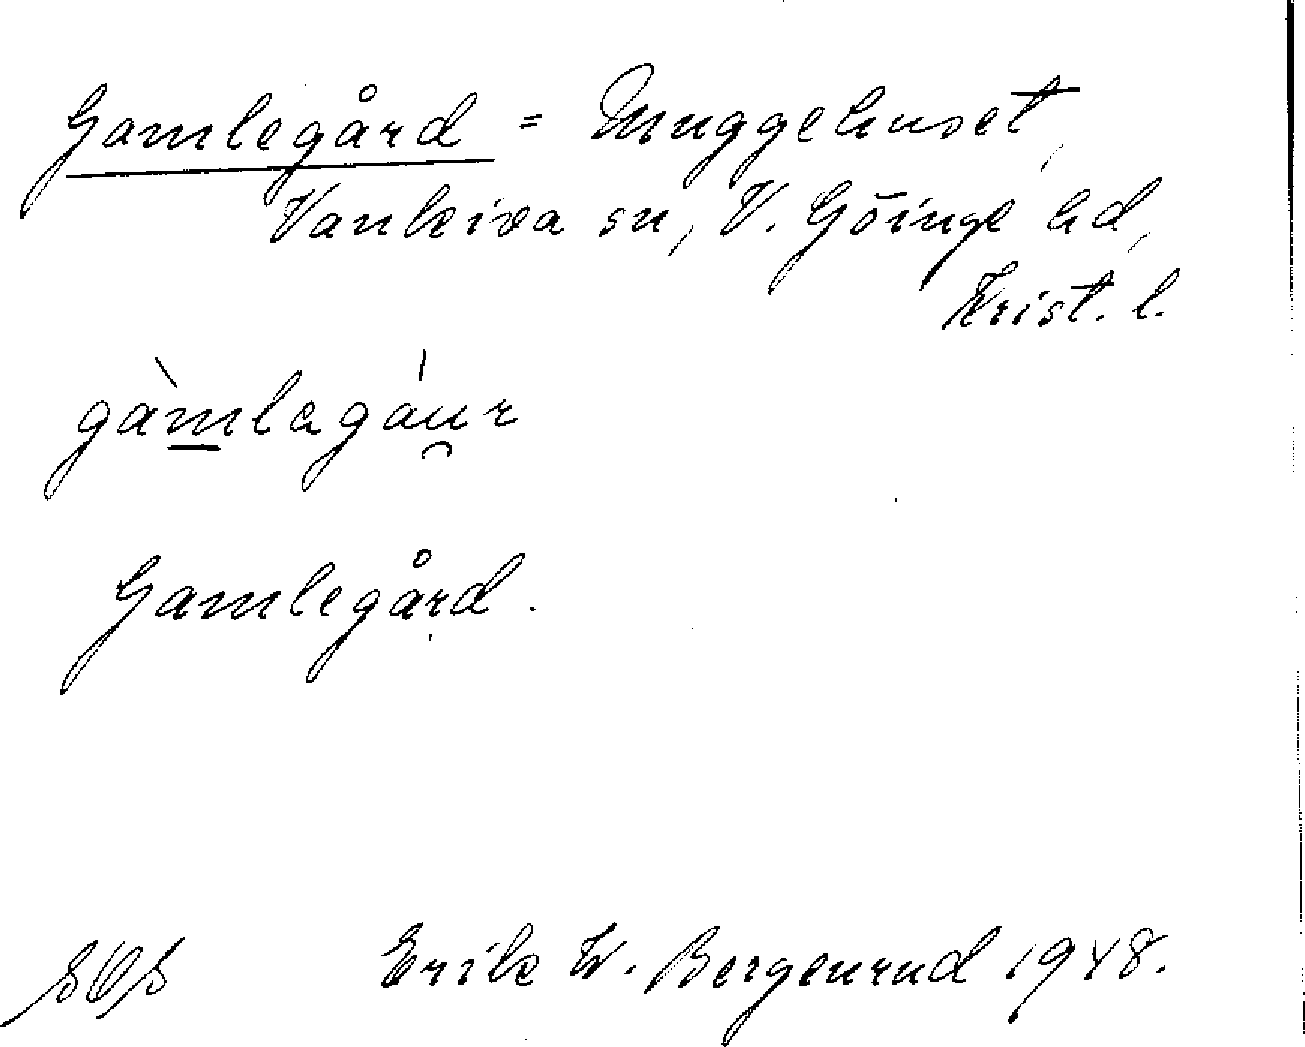 Gamlegård = Muggehuset,
Vankiva sn, V. Göinge hd,
Krist. l.
gàmlagáu̯r
Gamlegård.
Erik W. Bergenrud 1948.